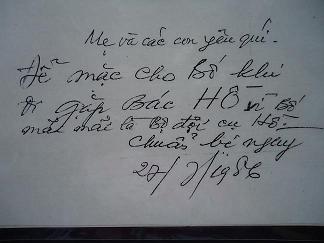 Mẹ và các con yêu quí.
Để mặc cho Bố khi
đi gặp Bác HỒ vì Bố
mãi mãi là Bộ đội cụ Hồ.
chuẩn bị ngay
27/ 1986